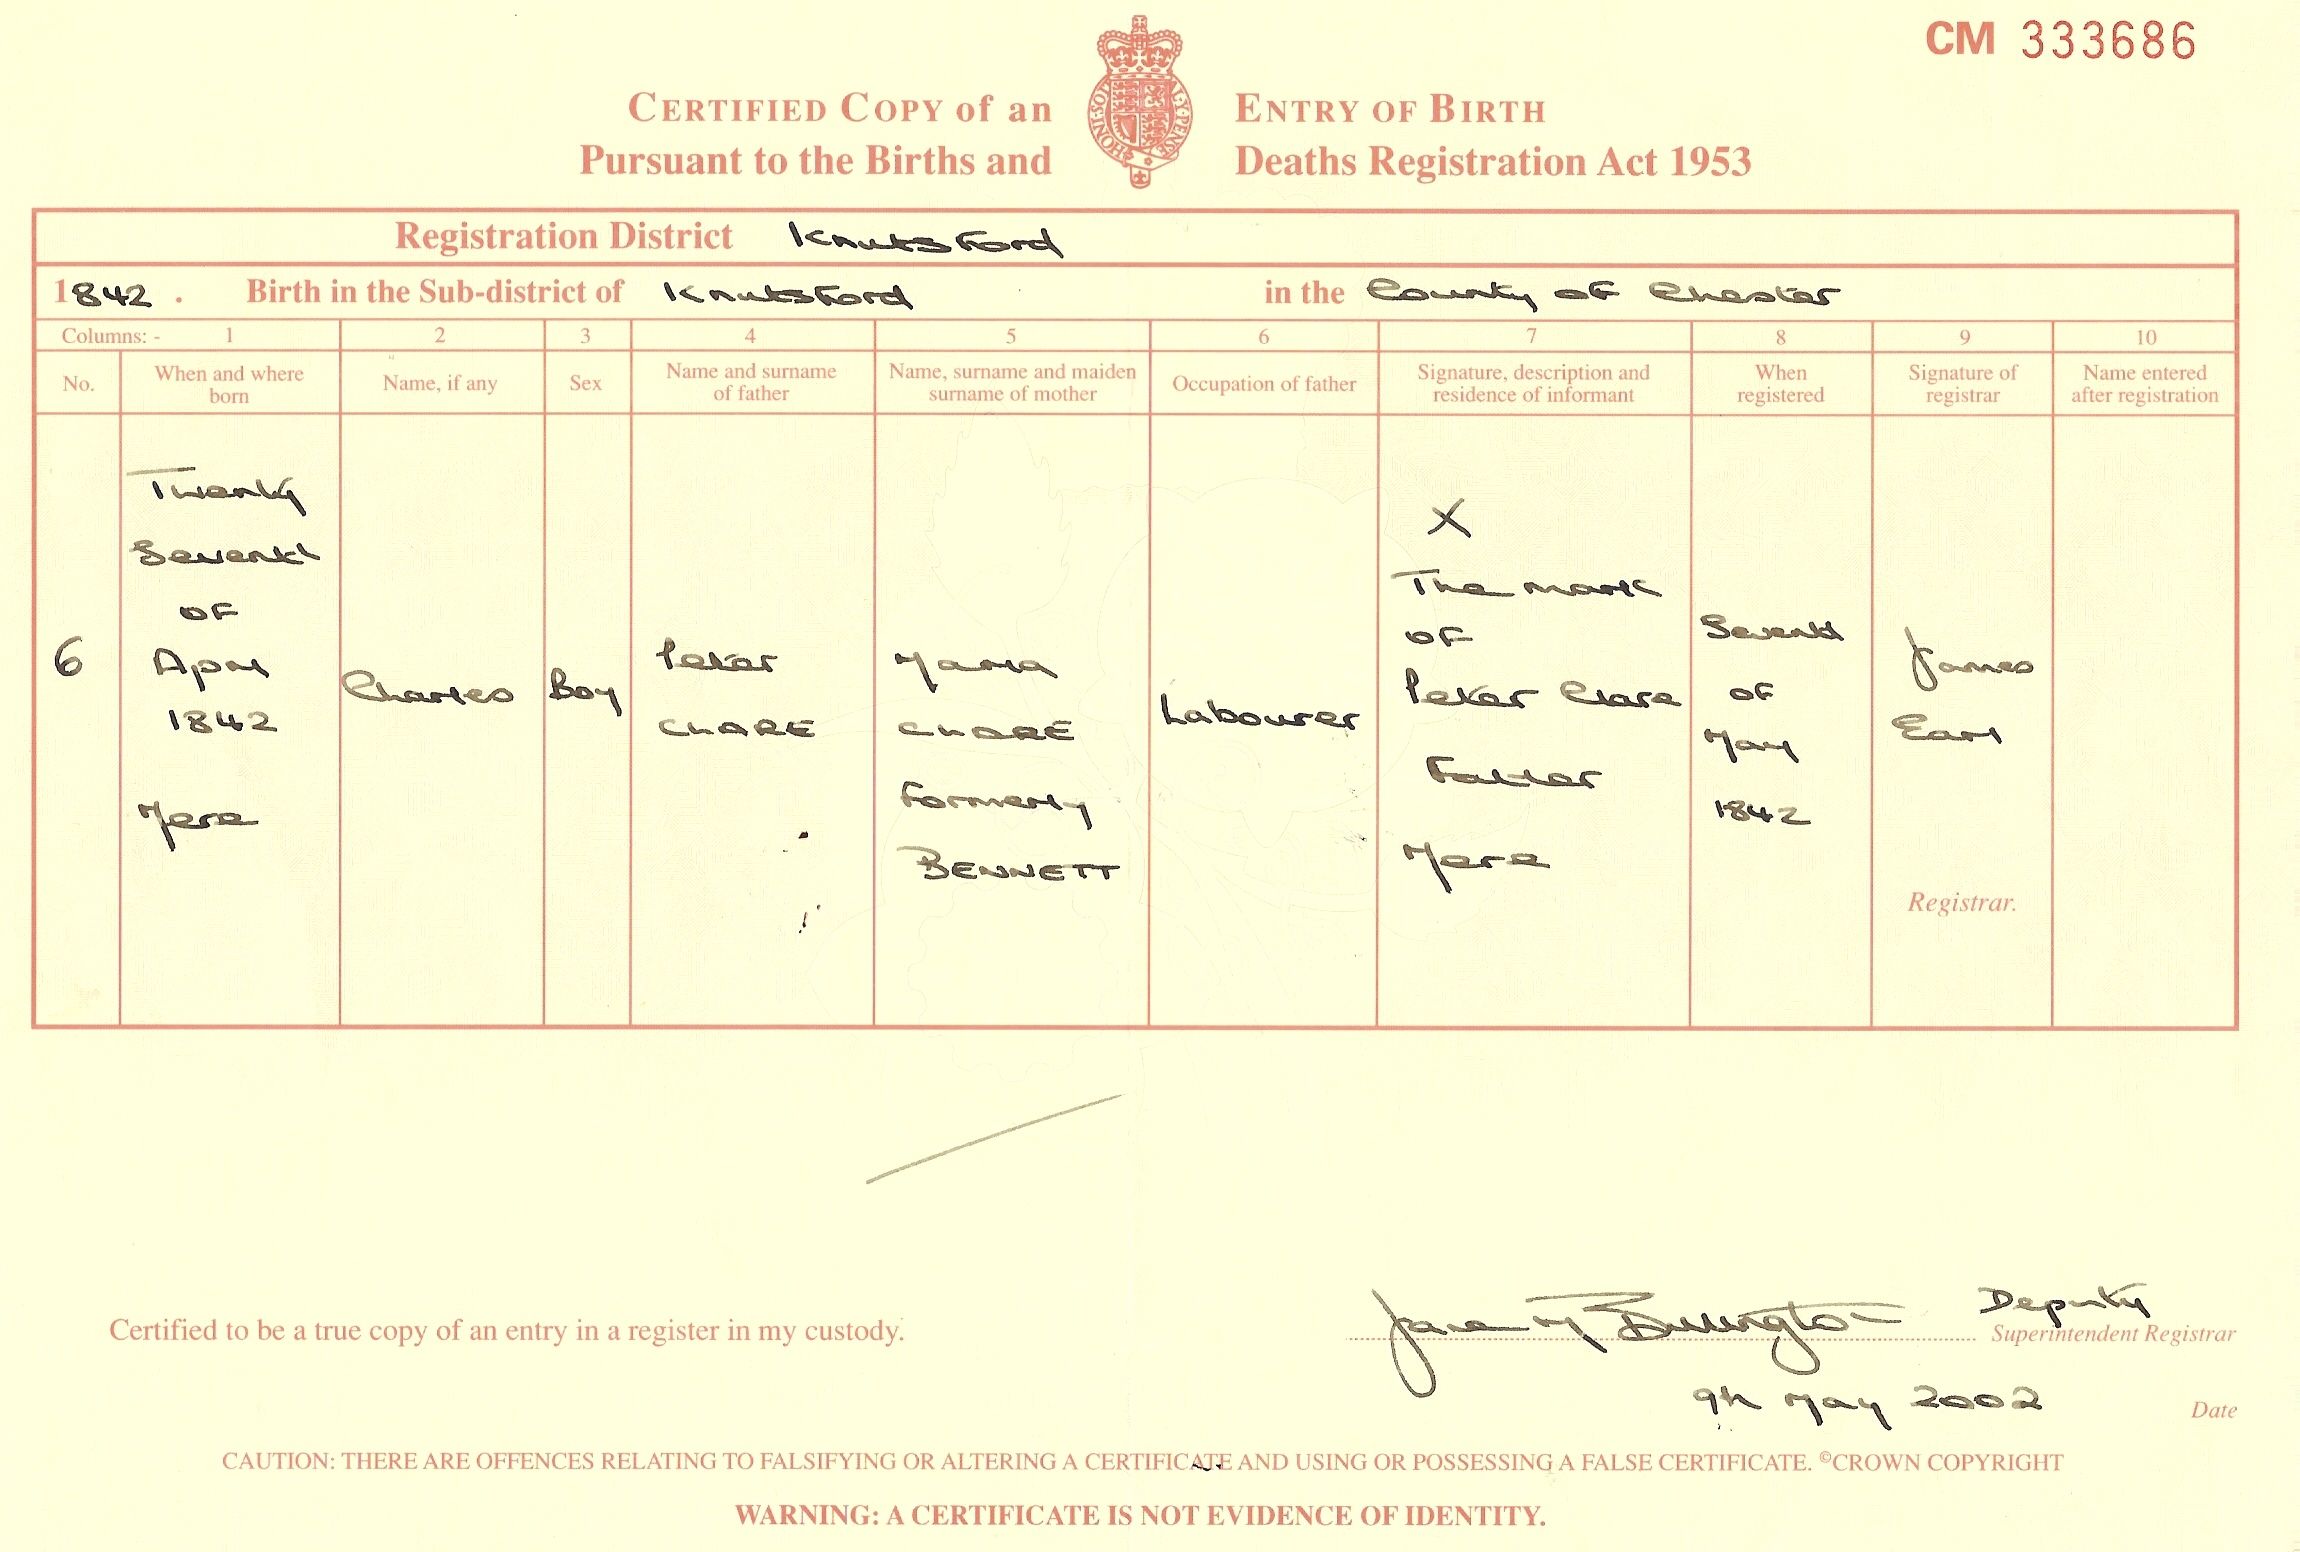 CM 333686
CERTIFIED COPY of an ENTRY OF BIRTH
Pursuant to the Births and Deaths Registration Act 1953
HONI·SOIT Y·PENSE
Registration District Knutsford
1842. Birth in the Sub-district of Knutsford in the County of Chester
Columns: - 1 2 3 4 5 6 7 8 9 10
No.
When and where
born
Name, if any
Sex
Name and surname
of father
Name, surname and maiden
surname of mother
Occupation of father
Signature, description and
residence of informant
When
registered
Signature of
registrar
Name entered
after registration
6
Twenty
Seventh
of
April
1842
Mere
Charles
Boy
Peter
CLARE
Maria
CLARE
Formerly
BENNETT
Labourer
X
The mark
of
Peter Clare
Father
Mere
Seventh
of
May
1842
James
Earl
Registrar.
Certified to be a true copy of an entry in a register in my custody.
Deputy
Superintendent Registrar
9th May 2002
Date
CAUTION: THERE ARE OFFENCES RELATING TO FALSIFYING OR ALTERING A CERTIFICATE AND USING OR POSSESSING A FALSE CERTIFICATE. ©CROWN COPYRIGHT
WARNING: A CERTIFICATE IS NOT EVIDENCE OF IDENTITY.